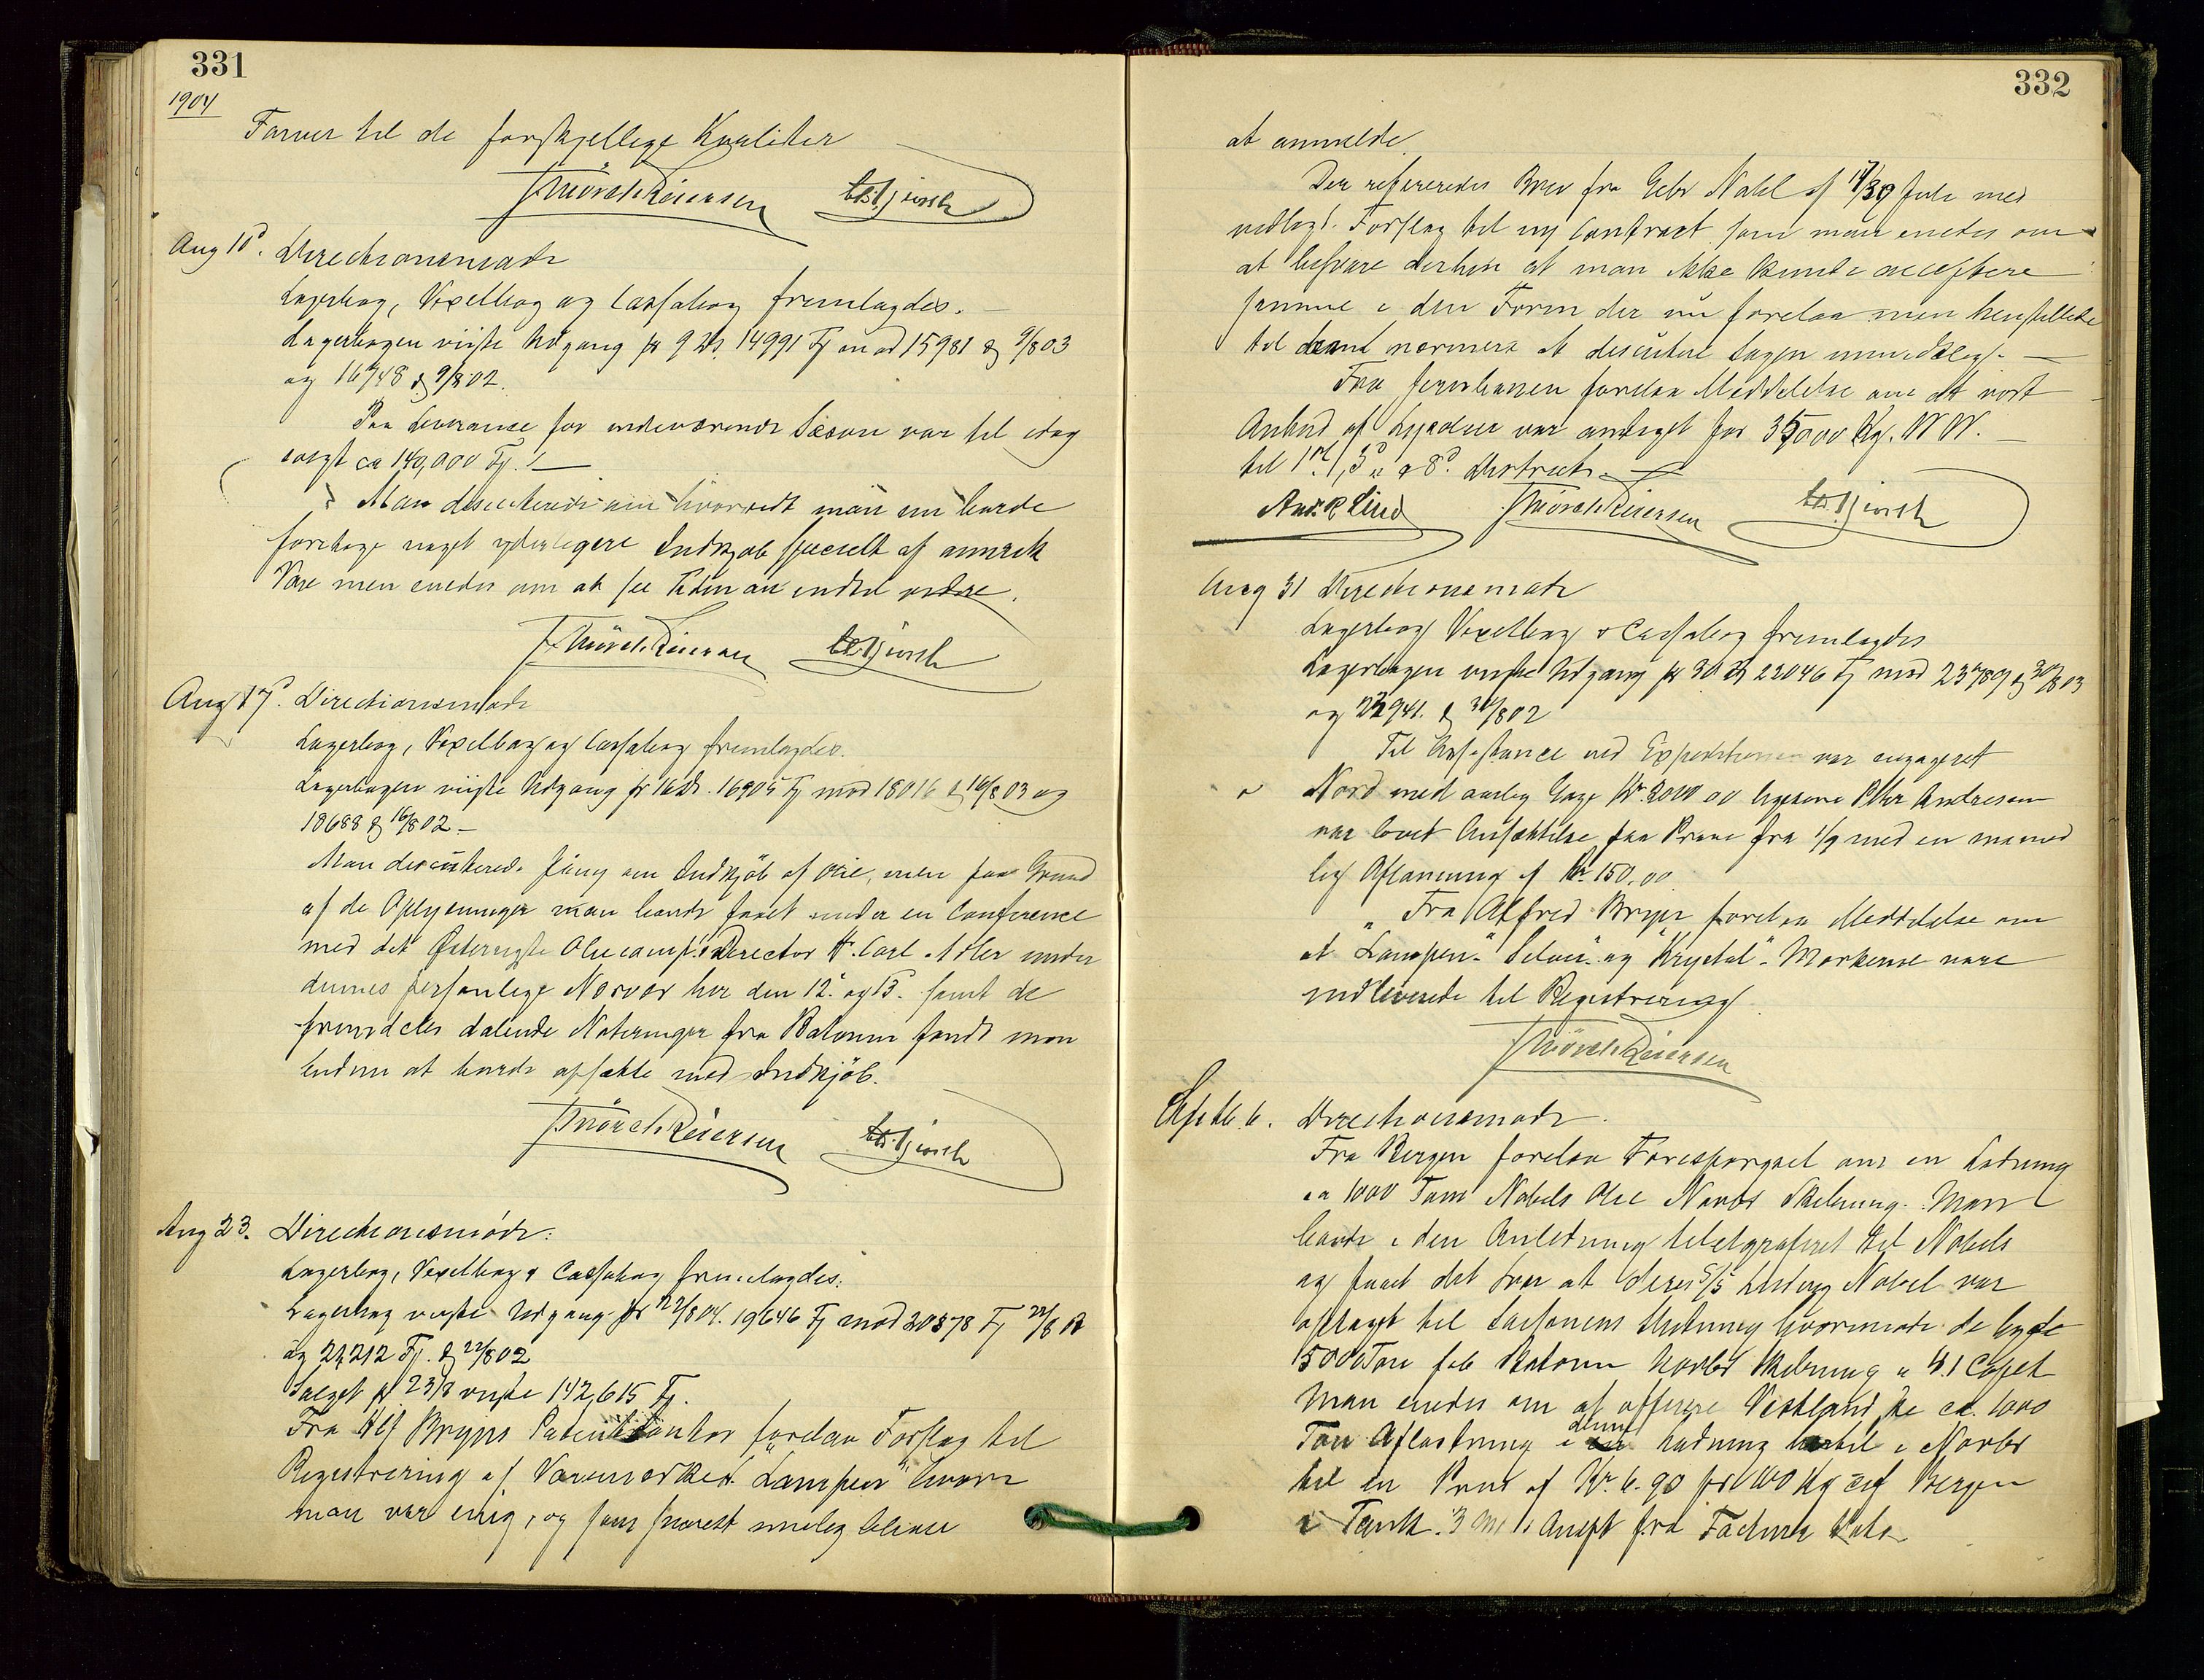 331
1904
Farver til de forskjellige Kvaliter
Thiörck Reiersen
Aug 10d. Directionsmøde
Lagerbog, Vexelbog og Cassabog fremlagdes.
Lagerbogen viiste Udgang pr 9 ds. 14991 Fj mod 15981 9/8 03
og 16748 9/8 02.
Paa Leverance for indeværende Sæson var til idag
solgt ca 140,000 Fj.
Man discuterede om hvorvidt man nu burde
foretage noget yderligere Indkjøb specielt af amrik
Vare men enedes om at see Tiden an indtil videre.
Thiörck Reiersen
Aug 17d. Directionsmøde
Lagerbog, Vexelbog og Cassabog fremlagdes.
Lagerbogen viiste Udgang pr 16 ds. 16905 Fj mod 18016 16/8 03 og
18688 16/8 02
Man discuterede om Indkjöb af Olie, men paa Grund
af de Oplysninger man havde faaet under en Conference
med det Østerrigske Oliecomp's Director Hr. Carl Adler under
dennes personlige Nærvær her den 12. og 13. samt de
fremdeles dalende Noteringer fra Batoum fandt man
endnu at burde opsætte med Indkjöb.
Thiörck Reiersen
Aug 23. Directionsmöde.
Lagerbog, Vexelbog & Cassabog fremlagdes.
Lagerbog viiste Udgang pr 22/8 04. 19646 Fj mod 20378 Fj 22/8 03
og 21,212 Fj. 22/8 02
Salget pr 23/8 viiste 142,615 Fj.
Fra Alf Bryns Patentkontor forelaa Forslag til
Registrering af Varemærket "Lampen" hvori
man var enig, og som snarest mulig bliver
332
at anmelde.
Der refereredes Brev fra Gebr Nobel af 17/30 Juli med
vedlagt Forslag til ny Contract som man enedes om
at besvare derhen at man ikke kunde acceptere
samme i den Form der nu forelaa men henstillede
til nærmere at discutere Sagen mundtlig.
Fra Jernbanen forelaa Meddelelse om at vort
Anbud af Lysolie var antaget for 35000 Kg. W W.
til 1st, 3d & 8d. District.
Andr. R Lind Thiörck Reiersen
Aug 31 Directionsmøde
Lagerbog Vexelbog & Cassabog fremlagdes
Lagerbogen viiste Udgang pr 30 ds 22046 Fj mod 23789 30/8 03
og 22941. 30/8 02
Til Assistance ved Expeditionen var engageret
Nord med aarlig Gage Kr. 2000 00 ligesom Andresen
var lovet Ansættelse paa Prøve fra 1/9 med en maaned
lig Aflønning af Kr 150.00
Fra Alfred Bryn forelaa Meddelelse om
at "Lampen" "Silver" og "Krystal" Mærkerne vare
indleverede til Registrering.
Thiörck Reiersen
Septbr. 6. Directionsmøde.
Fra Bergen forelaa Forespørgsel om en Ladning
ca 1000 Tons Nobels Olie Novbr Skibning. Man
havde i den Anledning telegraferet til Nobels
og faaet det Svar at deres S/S Ludvig Nobel var
optaget til Saisonens Slutning hvorimod de bygte
5000 Ton fob Batoum Novbr Skibning a Copek
Man enedes om at offerere Vestlandske ca. 1000
denne
Ton Aflastning i Ladning i Novbr
til en Pris af Kr. 6.90 pr 100 Kg cif Bergen
i Tank. 3 Accept fra Factura Dato